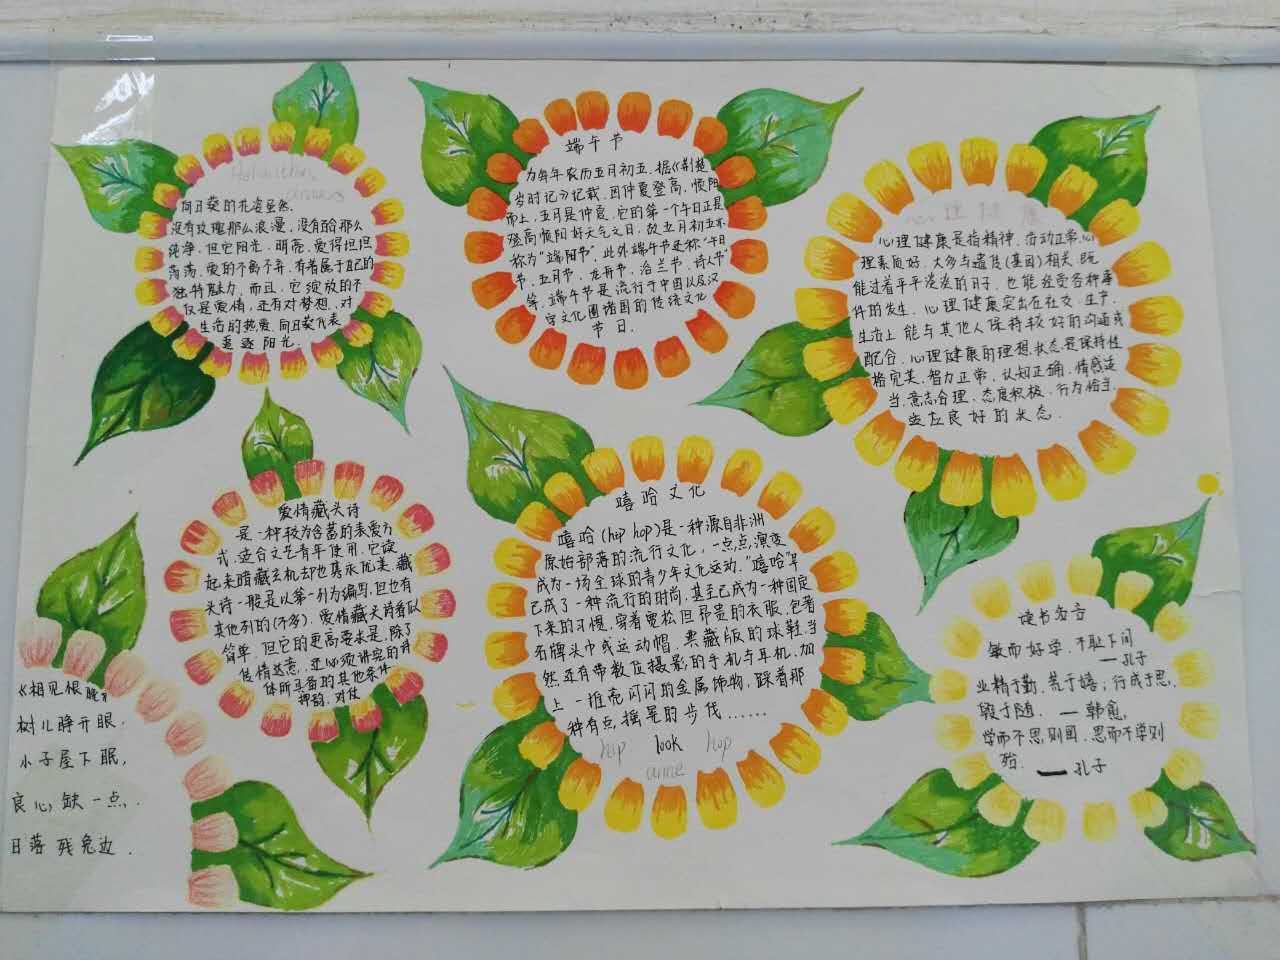 向日葵的花姿虽然,
没有玫瑰那么浪漫,没有百合那么
纯净,但它阳光、明亮,爱得坦坦
荡荡,爱的不离不弃,有着属于自己的
独特魅力,而且,它绽放的不
仅是爱情,还有对梦想、对
生活的热爱。向日葵代表
追逐阳光.
端午节
为每年农历五月初五.据《荆楚
岁时记》记载,因仲夏登高,顺阳
而上,五月是仲夏,它的第一个午日正是
登高顺阳好天气之日,故五月初五亦
称为“端阳节”.此外端午节还称“午日
节、五月节、龙舟节、浴兰节、诗人节”
等.端午节是流行于中国以及汉
字文化圈诸国的传统文化
节日.
心理健康
心理健康是指精神、活动正常、心
理素质好.大多与遗传(基因)相关.既
能过着平平淡淡的日子,也能经受各种事
件的发生.心理健康突出在社交、生产、
生活上能与其他人保持较好的沟通或
配合.心理健康的理想状态是保持性
格完美、智力正常、认知正确、情感适
当、意志合理、态度积极、行为恰当、
适应良好的状态.
爱情藏头诗
是一种较为含蓄的表爱方
式,适合文艺青年使用,它读
起来暗藏玄机却也隽永优美.藏
头诗一般是以第一列为编写,但也有
其他列的(不多).爱情藏头诗看似
简单,但它的更高要求是,除了
传情达意,还必须讲究的诗
体所具备的其他条件
押韵、对仗
嘻哈文化
嘻哈(hip hop)是一种源自非洲
原始部落的流行文化,一点点演变
成为一场全球的青少年文化运动.“嘻哈”早
已成了一种流行的时尚,甚至已成为一种固定
下来的习惯.穿着宽松但昂贵的衣服,包着
名牌头巾或运动帽、典藏版的球鞋,当
然还有带数位摄影的手机与耳机,加
上一堆亮闪闪的金属饰物,踩着那
种有点摇晃的步伐……
hip look hop
anne
读书名言
敏而好学,不耻下问
——孔子
业精于勤,荒于嬉;行成于思,
毁于随.——韩愈
学而不思则罔,思而不学则
殆.——孔子
《相见恨晚》
树儿睁开眼,
小子屋下眠,
良心缺一点,
日落残兔边.